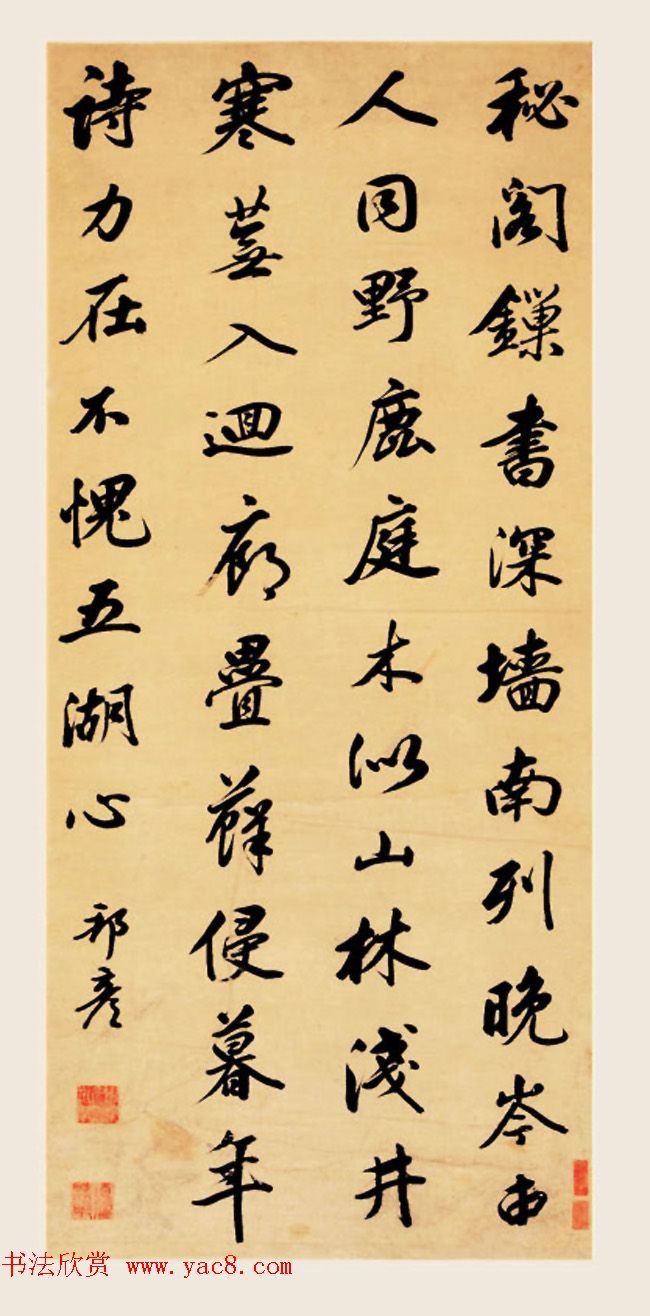 秘閣鏁書深墻南列晚岑吏
人同野鹿庭木似山林淺井
寒蕪入迴廊疊蘚侵暮年
詩力在不愧五湖心 邦彥
书法欣赏 www.yac8.com